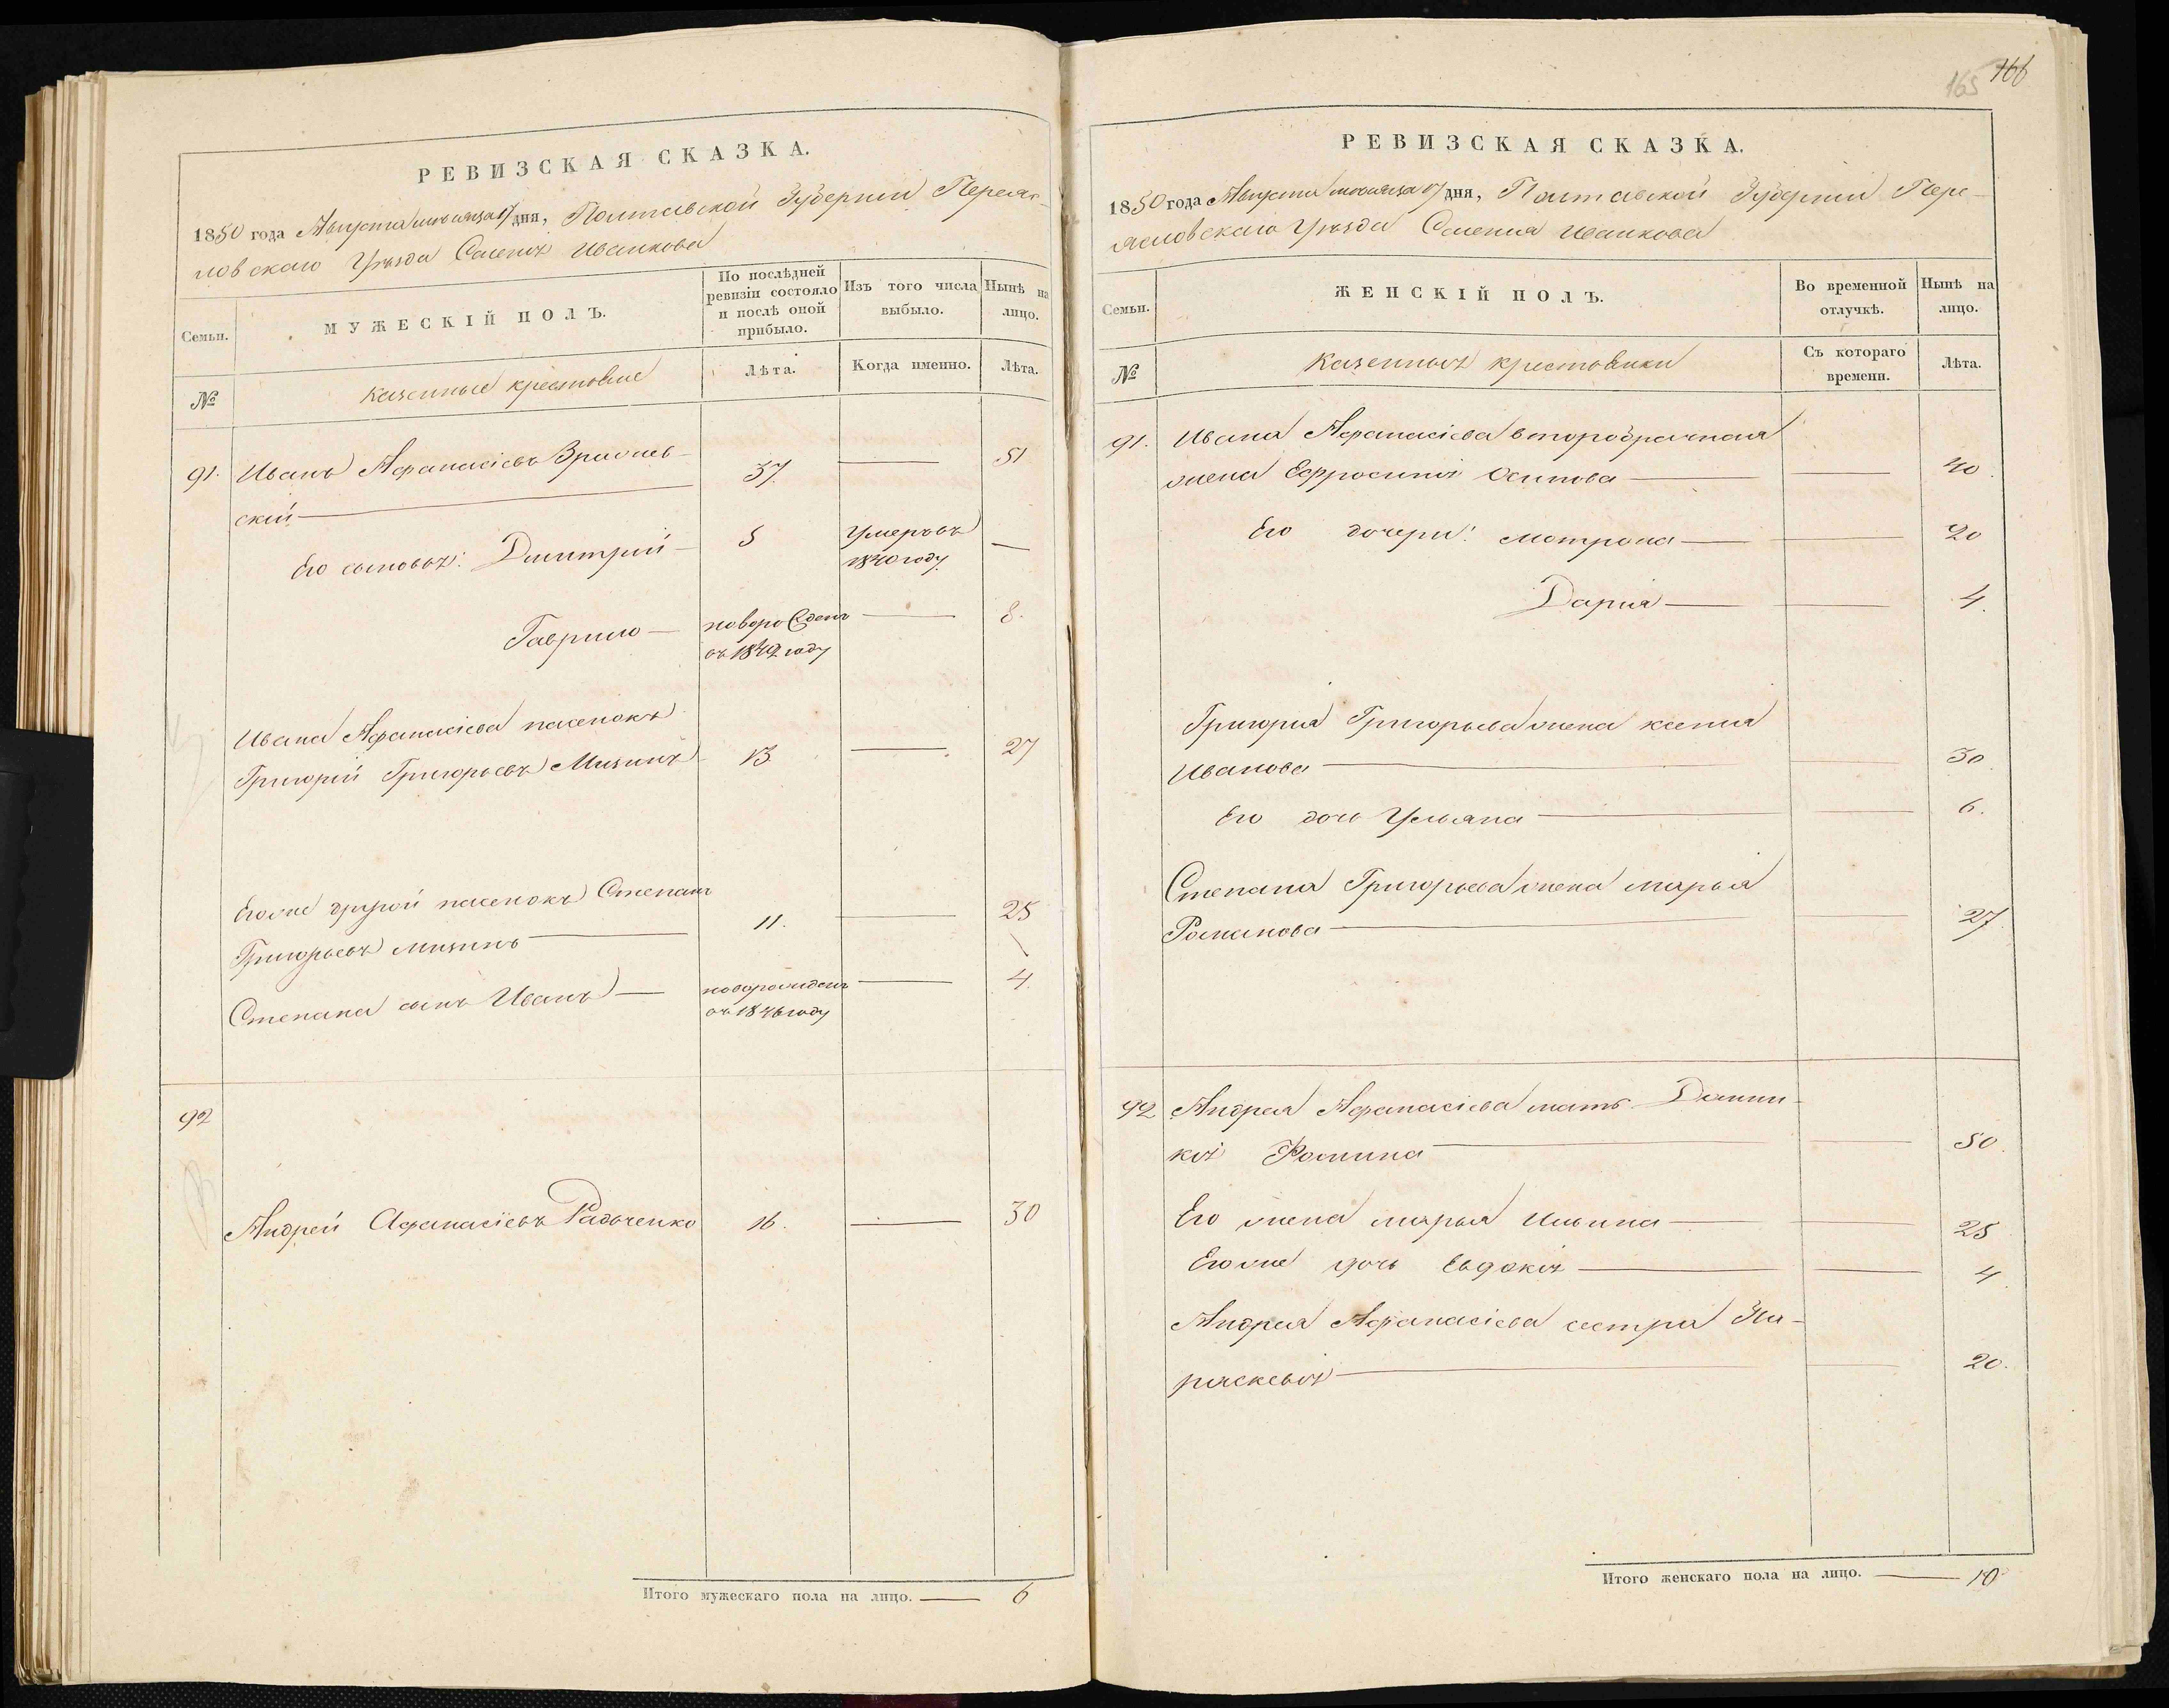 РЕВИЗСКАЯ СКАЗКА.
1850 года Августа месяца 17 дня, Полтавской Губернии Переяс-
ловскаго Уѣзда Селенія Иванкова
Семьи.
МУЖЕСКІЙ ПОЛЪ.
По послѣдней
ревизіи состояло
и послѣ оной
прибыло.
Изъ того числа
выбыло.
Нынѣ на
лицо.
№
Казенные крестьяне
Лѣта.
Когда именно.
Лѣта.
91. Иванъ Афанасіевъ
скій 37. 51
Его сыновья: Дмитрій 5 Умеръ въ
1840 году.
Гаврило новорожденъ 8.
въ 1842 году
Ивана Афанасіева пасенокъ
Григорій Григорьевъ Мизинъ 13. 27
Егоже другой пасенокъ Степанъ
Григорьевъ Мизинъ 11. 25
Степана сынъ Иванъ новорожденъ 4.
въ 1846 году
92
Андрей Афанасіевъ Радченко 16. 30
Итого мужескаго пола на лицо. 6
165 166
РЕВИЗСКАЯ СКАЗКА.
1850 года Августа месяца 17 дня, Полтавской Губерніи Пере-
ясловскаго Уѣзда Селенія Иванкова
Семьи.
ЖЕНСКІЙ ПОЛЪ.
Во временной
отлучкѣ.
Нынѣ на
лицо.
№
Казенныя крестьянки
Съ котораго
времени.
Лѣта.
91. Ивана Афанасіева второбрачная
жена Ефросинія Осипова 40.
Его дочери: Мотрона 20
Дарія 4.
Григорія Григорьева жена Ксенія
Иванова 30.
Его дочь Ульяна 6.
Степана Григорьева жена Марья
Романова 27.
92 Андрея Афанасіева мать Домни-
кія Фомина 50.
Его жена Марья Ильина 25
Егоже дочь Евдокія 4.
Андрея Афанасіева сестра Па-
раскевія 20.
Итого женскаго пола на лицо. 10